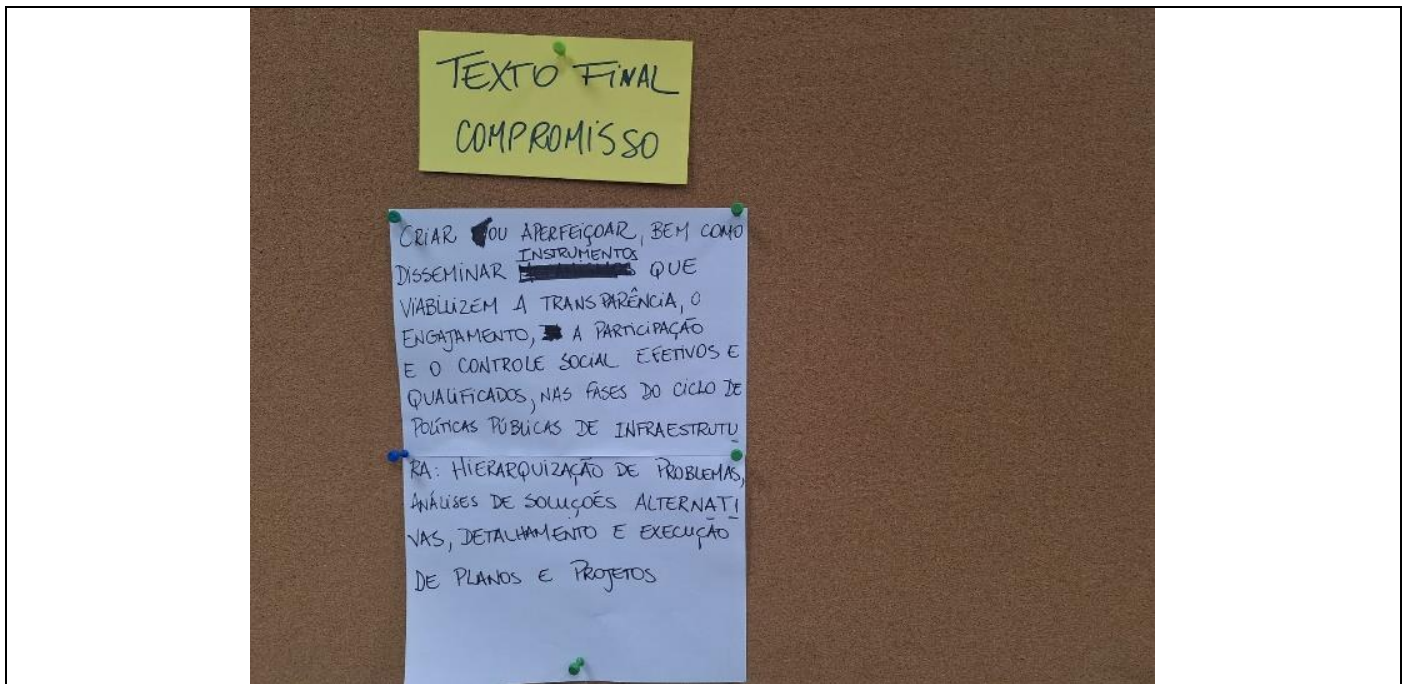 TEXTO FINAL
COMPROMISSO
CRIAR OU APERFEIÇOAR, BEM COMO
INSTRUMENTOS
DISSEMINAR QUE
VIABILIZEM A TRANSPARÊNCIA, O
ENGAJAMENTO, A PARTICIPAÇÃO
E O CONTROLE SOCIAL EFETIVOS E
QUALIFICADOS, NAS FASES DO CICLO DE
POLÍTICAS PÚBLICAS DE INFRAESTRUTU
RA: HIERARQUIZAÇÃO DE PROBLEMAS,
ANÁLISES DE SOLUÇÕES ALTERNATI
VAS, DETALHAMENTO E EXECUÇÃO
DE PLANOS E PROJETOS